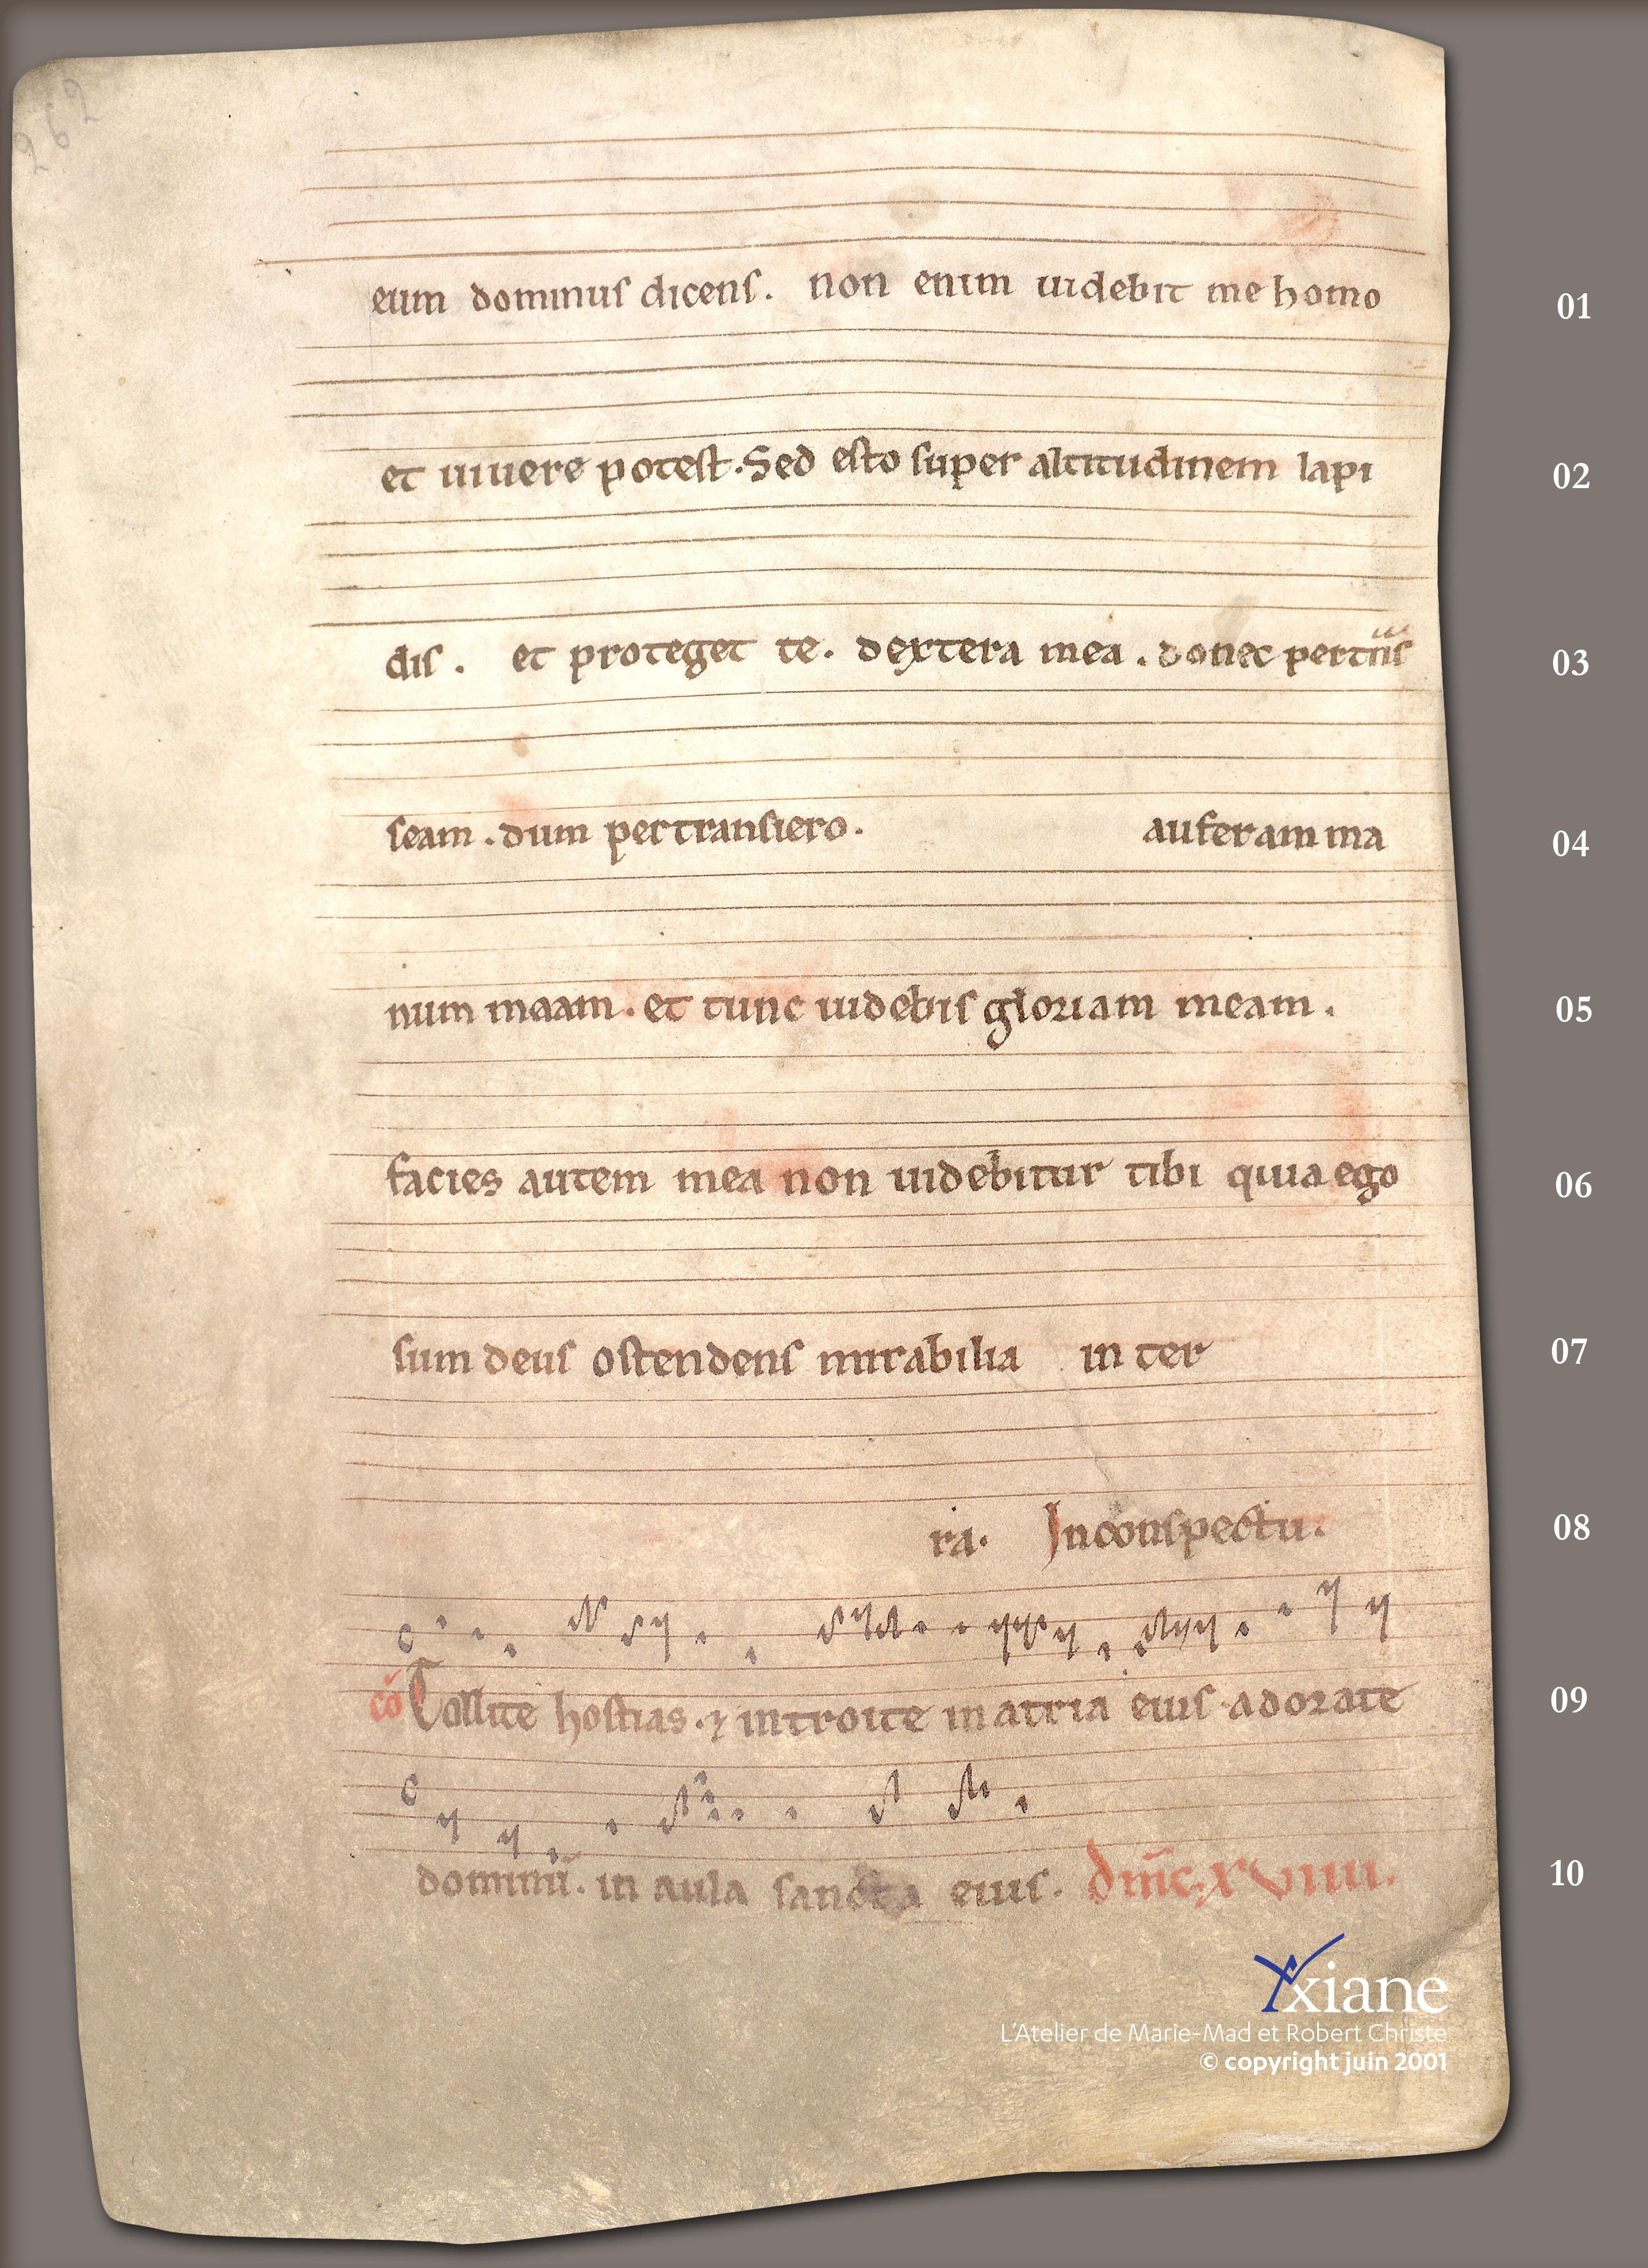 262
eum dominus dicens. non enim uidebit me homo 01
et uiuere potest. Sed esto super altitudinem lapi 02
dis. et proteget te. dextera mea. donec pertns 03
seam. dum pertransiero. auferam ma 04
num maam. et tunc uidebis gloriam meam. 05
facies autem mea non uidebitur tibi quia ego 06
sum deus ostendens mirabilia in ter 07
ra. Inconspectu. 08
cō Tollite hostias. ⁊ introite in atria eius adorate 09
dominū. in aula sancta eius. dm̄c. xviiii. 10
Yxiane
L'Atelier de Marie-Mad et Robert Christe
© copyright juin 2001